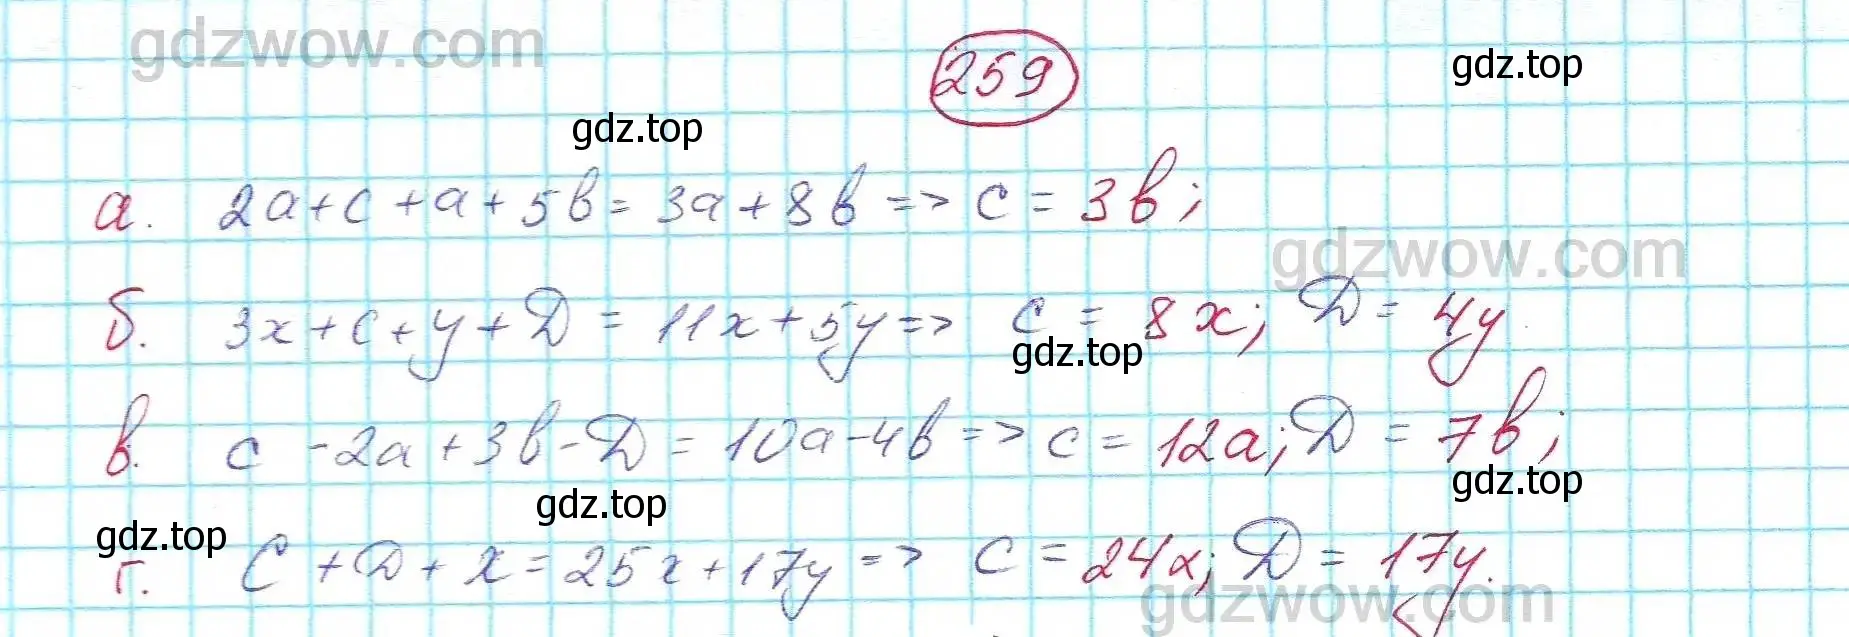 gdzwow.com
259
gdz.top
gdz.top
а. 2a+c+a+5b=3a+8b=>c=3b;
gdzwow.com
б. 3x+c+y+D=11x+5y=> c=8x; D=4y
gdz.top
в. c-2a+3b-D=10a-4b=>c=12a; D=7b;
gdz.top
gdz.top
gdz.top
г. C+D+x=25x+17y=> C=24x; D=17y.
gdzwow.com